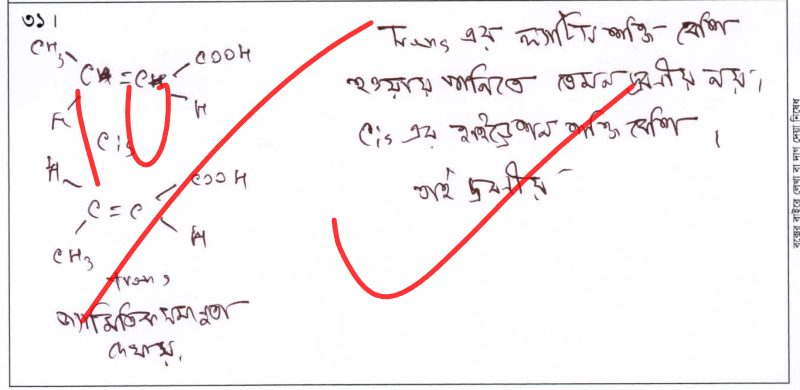 ৩১।
CH₃ COOH
C = C
H H
Cis
H COOH
C = C
CH₃ H
trans
জ্যামিতিক সমানুতা
দেখায়।
Trans এর ল্যাটিস শক্তি বেশি
হওয়ায় পানিতে তেমন দ্রবনীয় নয়।
Cis এর হাইড্রেশন শক্তি বেশি ।
তাই দ্রবনীয়
বক্সের বাইরে লেখা বা দাগ দেয়া নিষেধ